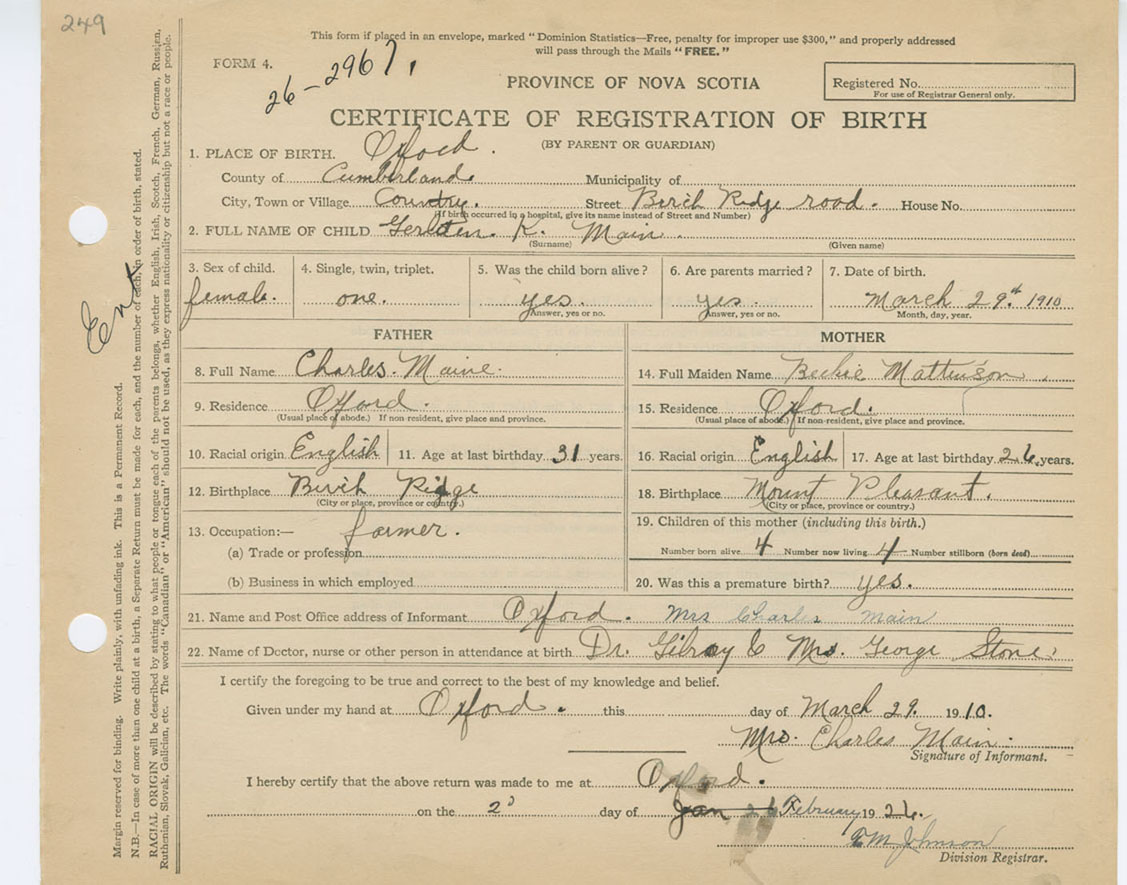 249
This form if placed in an envelope, marked "Dominion Statistics—Free, penalty for improper use $300," and properly addressed
will pass through the Mails "FREE."
FORM 4.
26-2967.
PROVINCE OF NOVA SCOTIA
Registered No.
For use of Registrar General only.
CERTIFICATE OF REGISTRATION OF BIRTH
(BY PARENT OR GUARDIAN)
1. PLACE OF BIRTH. Oxford.
County of Cumberland. Municipality of
City, Town or Village Country. Street Birch Ridge road. House No.
(If birth occurred in a hospital, give its name instead of Street and Number)
2. FULL NAME OF CHILD K. Main.
(Surname) (Given name)
3. Sex of child. 4. Single, twin, triplet. 5. Was the child born alive? 6. Are parents married? 7. Date of birth.
female. one. yes. yes. March 29th 1910
Answer, yes or no. Answer, yes or no. Month, day, year.
FATHER MOTHER
8. Full Name Charles. Maine. 14. Full Maiden Name Mattinson.
9. Residence Oxford. 15. Residence Oxford.
(Usual place of abode.) If non-resident, give place and province. (Usual place of abode.) If non-resident, give place and province.
10. Racial origin English 11. Age at last birthday 31 years. 16. Racial origin English 17. Age at last birthday 26 years.
12. Birthplace Birch Ridge 18. Birthplace Mount Pleasant.
(City or place, province or country.) (City or place, province or country.)
13. Occupation:— farmer. 19. Children of this mother (including this birth.)
(a) Trade or profession Number born alive 4 Number now living 4 Number stillborn (born dead)
(b) Business in which employed 20. Was this a premature birth? yes.
21. Name and Post Office address of Informant Oxford. Mrs Charles Main
22. Name of Doctor, nurse or other person in attendance at birth Dr. Gilroy & Mrs. George Stone.
I certify the foregoing to be true and correct to the best of my knowledge and belief.
Given under my hand at Oxford. this day of March 29. 1910.
Mrs. Charles Main.
Signature of Informant.
I hereby certify that the above return was made to me at Oxford.
on the 2 day of Jan 26 February 1926.
Johnson
Division Registrar.
Margin reserved for binding. Write plainly, with unfading ink. This is a Permanent Record.
N.B.—In case of more than one child at a birth, a Separate Return must be made for each, and the number of each, in order of birth, stated.
RACIAL ORIGIN will be described by stating to what people or tongue each of the parents belongs, whether English, Irish, Scotch, French, German, Russian,
Ruthenian, Slovak, Galician, etc. The words "Canadian" or "American" should not be used, as they express nationality or citizenship but not a race or people.
Ent